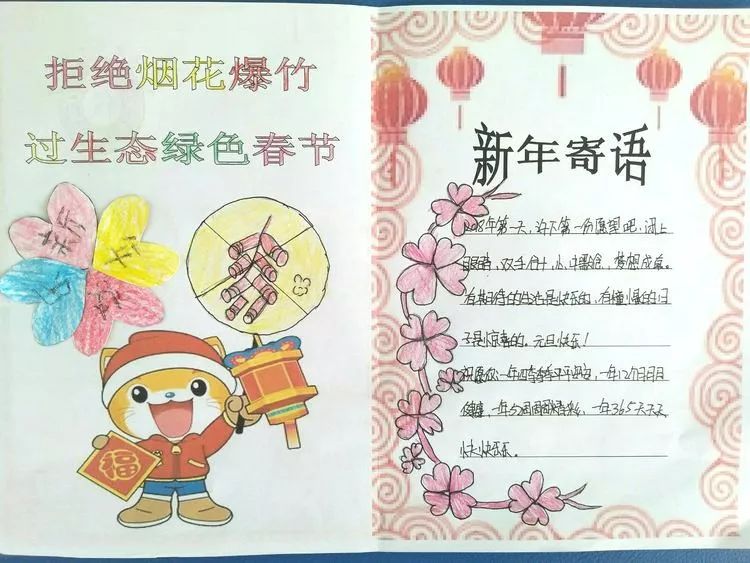 拒绝烟花爆竹
过生态绿色春节
福
新年寄语
2018年第一天，许下第一份愿望吧，闭上
眼睛，双手合十，心中默念，梦想成真。
有期待的生活是快乐的，有憧憬的日
子是惊喜的。元旦快乐！
祝愿你一年四季季平安，一年12个月月月
健康，一年52周周周精彩，一年365天天天
快快乐乐。